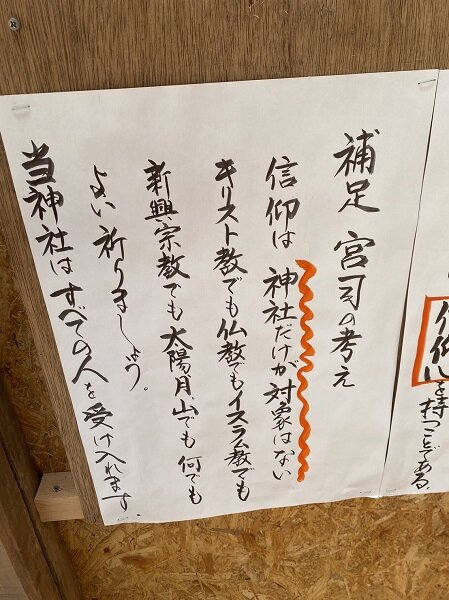 信仰心を持つことである。
補足 宮司の考え
信仰は 神社だけが対象はない
キリスト教でも仏教でもイスラム教でも
新興宗教でも 太陽、月、山でも 何でも
よい 祈りましょう。
当神社は すべての人を 受け入れます。